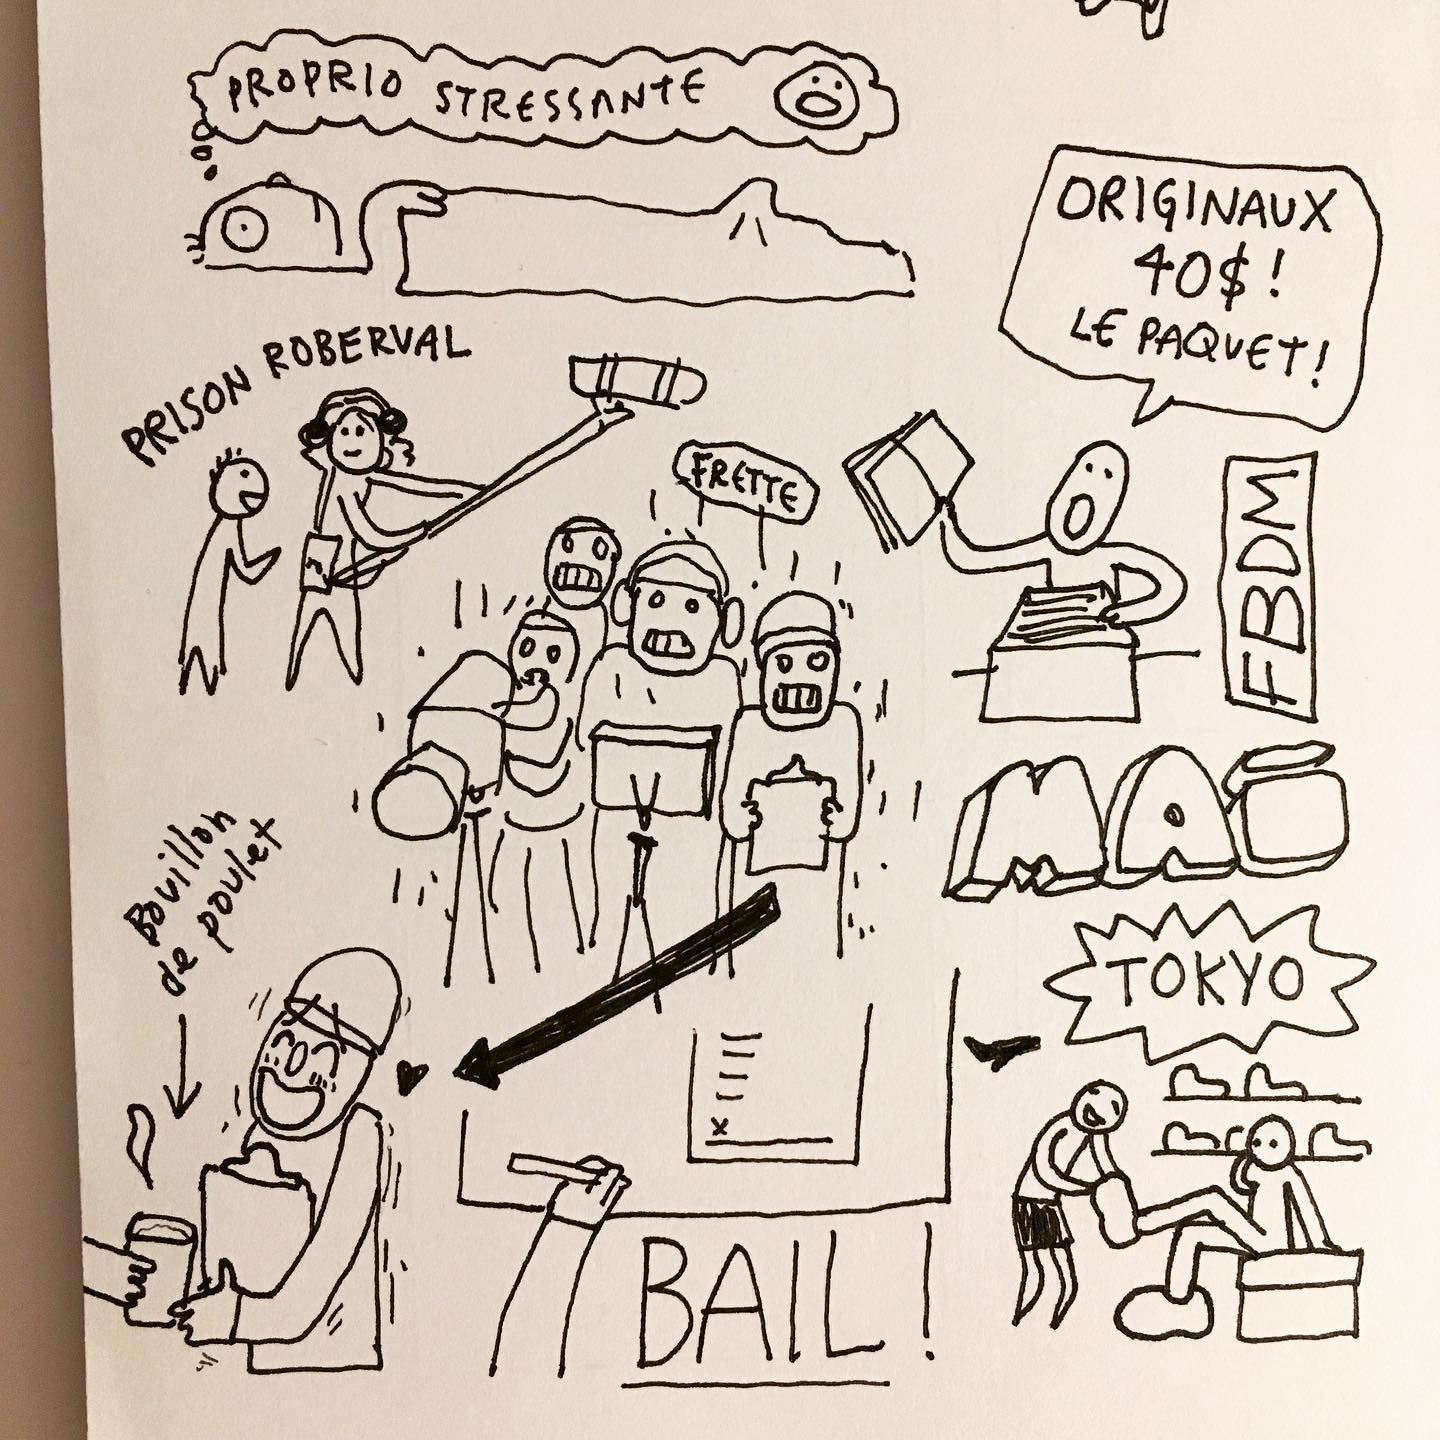 PROPRIO STRESSANTE
ORIGINAUX
40$!
LE PAQUET!
PRISON ROBERVAL
FRETTE
FBDM
MAI
TOKYO
Bouillon
de poulet
X
BAIL!